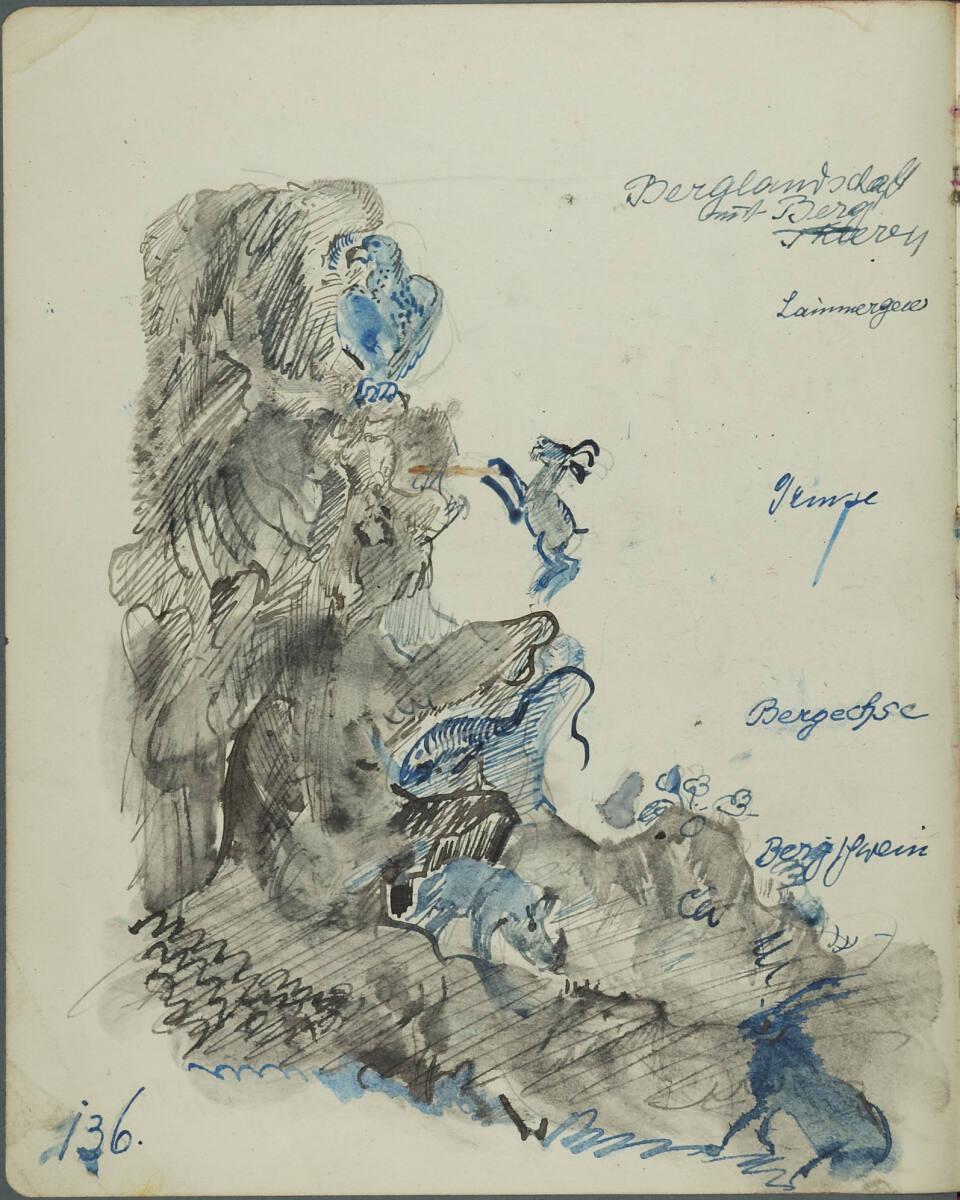 Berglandschaft
mit Berg
Thieren
Lämmergeie
Gemse
Bergechse
Bergschwein
136.